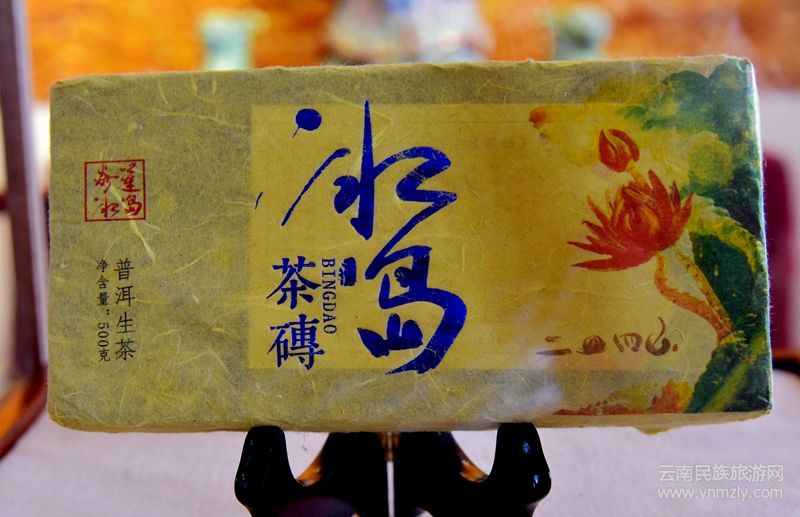 冰岛
BINGDAO
茶磚
普洱生茶
净含量:500克
云南民族旅游网
www.ynmzly.com